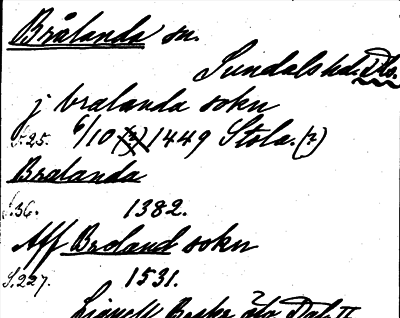 Brålanda sn.
Sundals hd. Dls.
j bralanda sokn
S.25. 6/10 (?) 1449 Stola. (?)
Bralanda
S.36. 1382.
Aff Broland sokn
S.227. 1531.
Lignell Beskr. Dal II